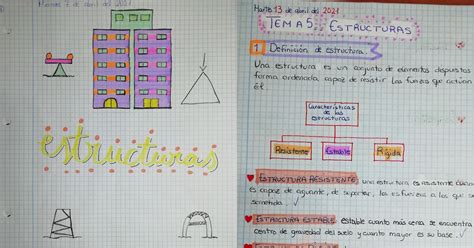 Martes 7 de abril del 2021
estructuras
Martes 13 de abril del 2021
TEMA 5: ESTRUCTURAS
1. Definición de estructura:
Una estructura es un conjunto de elementos dispuestos
forma ordenada, capaz de resistir las fuerzas que actúan
él.
Características
de las
estructuras
Resistente
Estable
Rígida
ESTRUCTURA RESISTENTE: una estructura es resistente cuando
es capaz de aguantar, de soportar, los esfuerzos a los que se
sometida.
ESTRUCTURA ESTABLE: estable cuanto más cerca se encuentra
centro de gravedad del suelo y cuanto mayor es la base